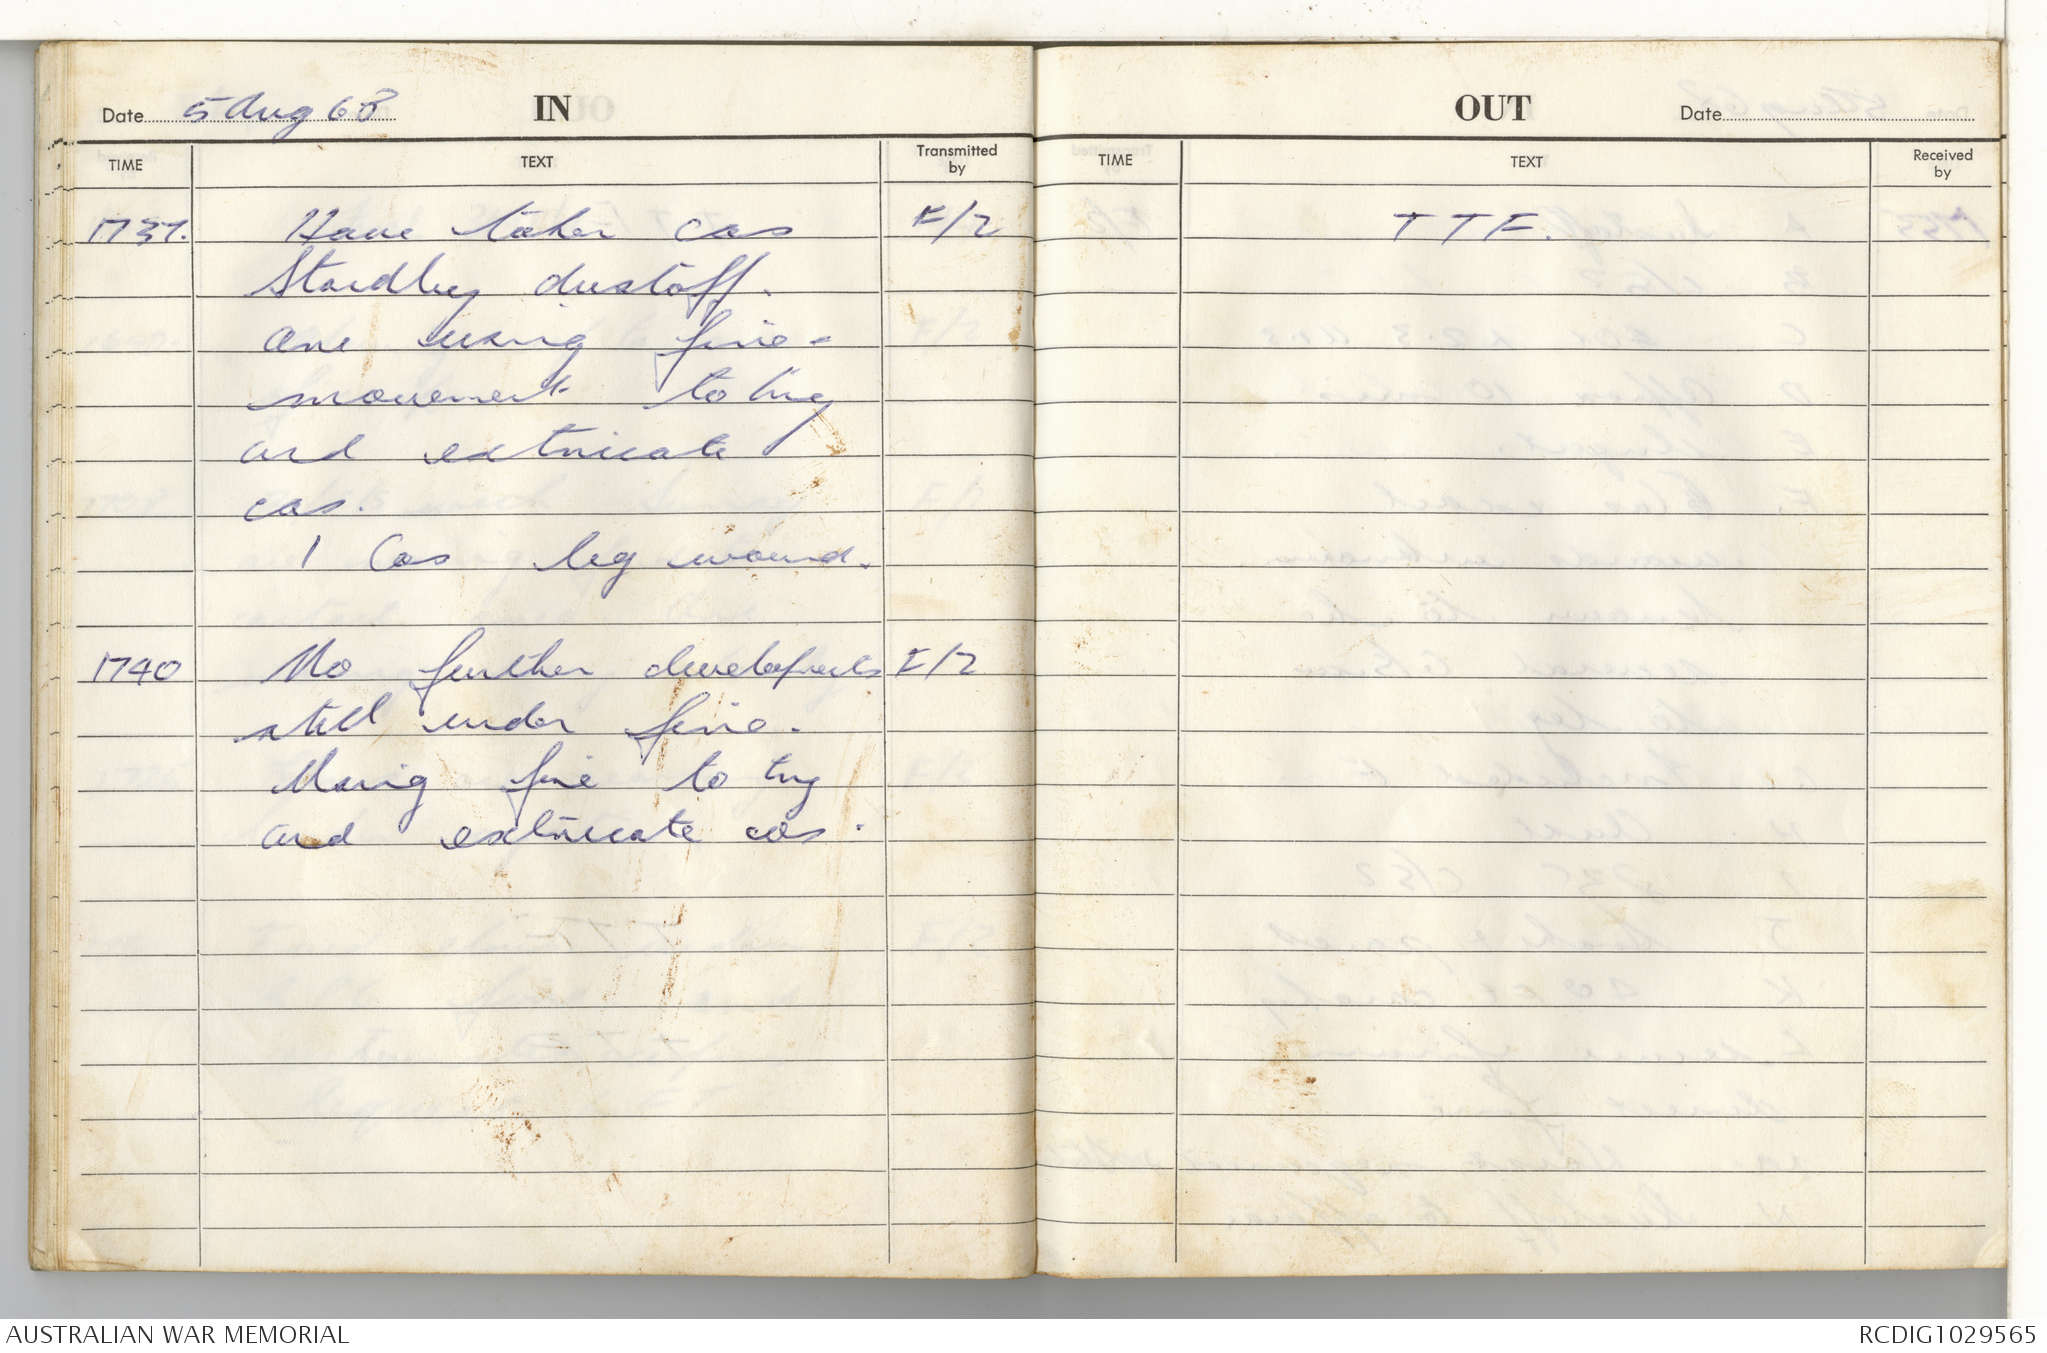 Date 5 Aug 68 IN
TIME TEXT Transmitted by
1737. Have taken cas E/2
Standby dustoff.
are using fire-
movement to try
and extricate
cas.
1 Cas leg wound.
1740 No further develofments E/2
still under fire.
Using fire to try
and extricate cas.
OUT Date
TIME TEXT Received by
TTF.
AUSTRALIAN WAR MEMORIAL
RCDIG1029565